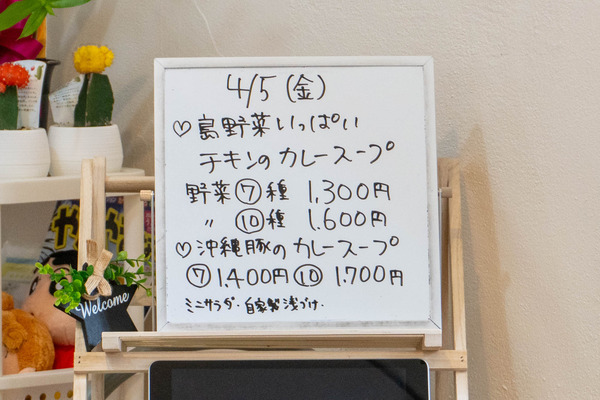 4/5 (金)
♡島野菜いっぱい
チキンのカレースープ
野菜⑦種 1,300円
〃 ⑩種 1.600円
♡沖縄豚のカレースープ
⑦1.400円⑩1.700円
ミニサラダ・自家製浅づけ・
Welcome